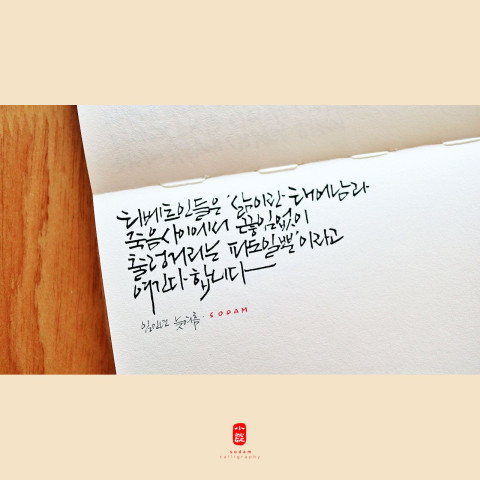 티베트인들은 '삶이란 태어남과
죽음사이에서 끊임없이
출렁거리는 파도일뿐'이라고
여긴다 합니다
임인년 늦여름. SODAM
sodam
calligraphy